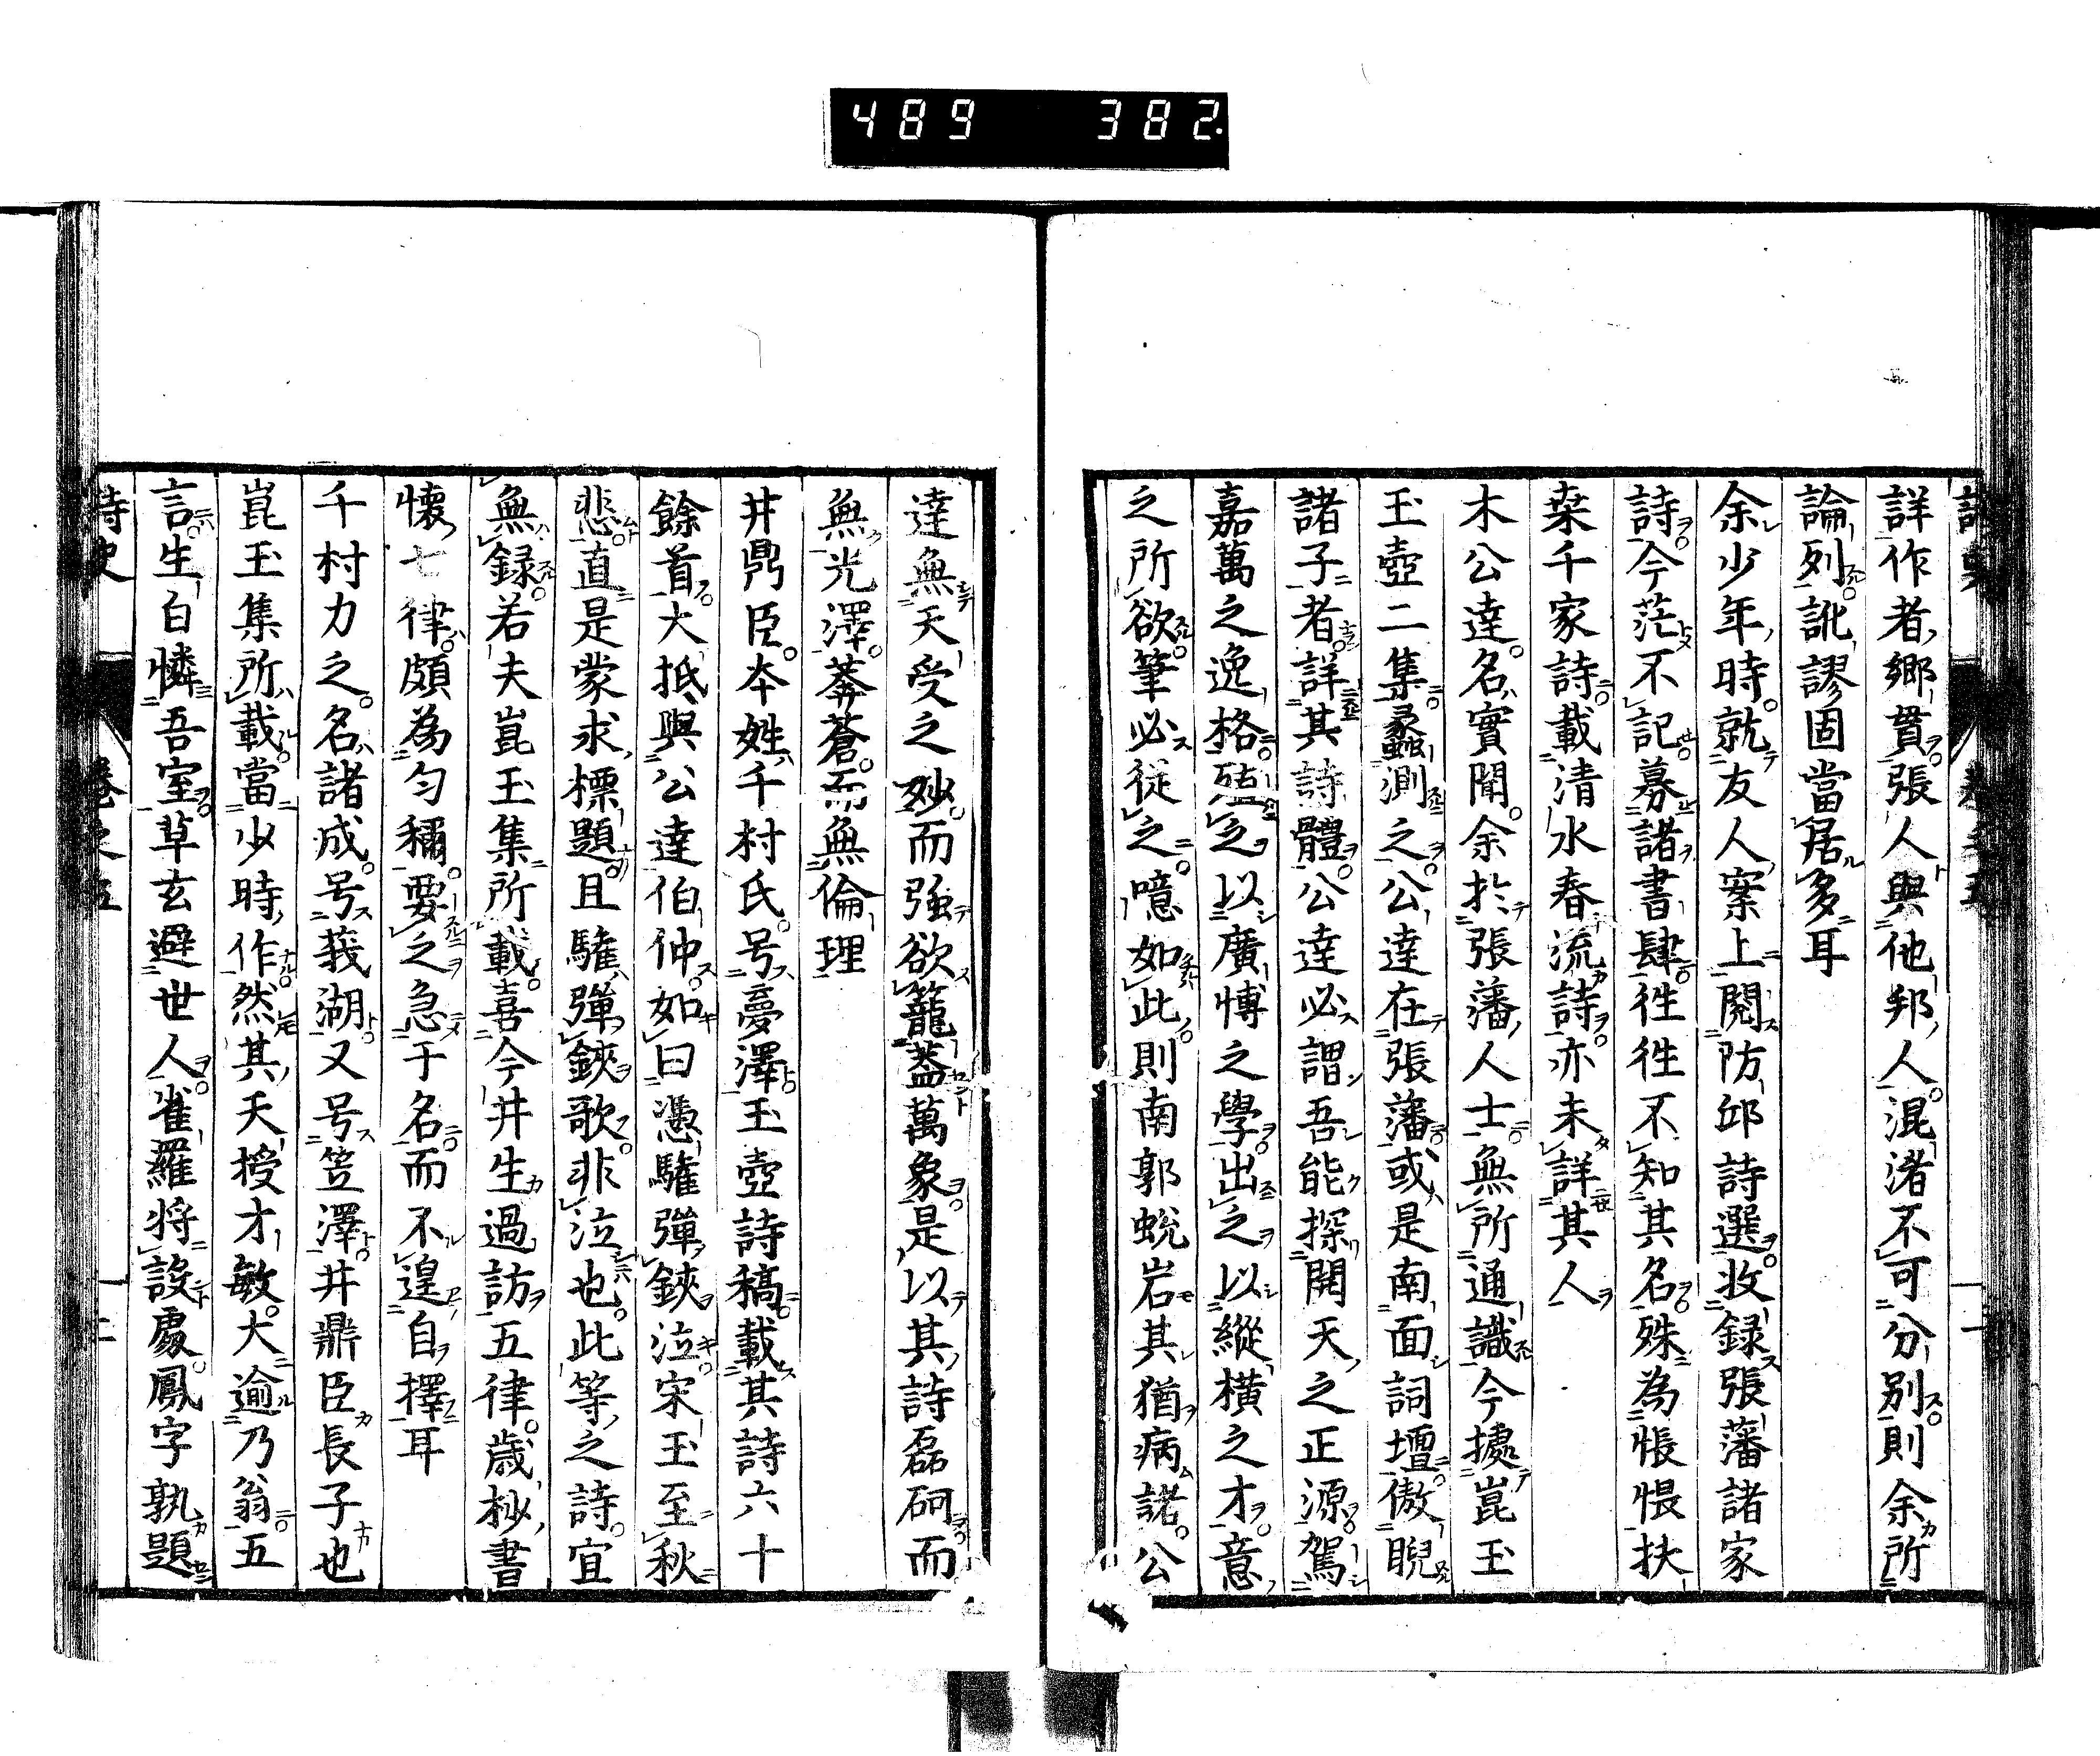 489 382
詳作者鄉貫張人與他邦人混淆不可分別則余所
論列訛謬固當居多耳
余少年時就友人案上閱防邱詩選收録張藩諸家
詩今茫不記募諸書肆徃徃不知其名殊為悵悵扶
桒千家詩載清水春流詩亦未詳其人
木公達名實聞余於張藩人士無所通識今據崑玉
玉壺二集蠡測之公達在張藩或是南面詞壇傲睨
諸子者詳其詩體公達必謂吾能探開天之正源駕
嘉萬之逸格殖之以廣博之學出之以縱橫之才意
之所欲筆必從之噫如此則南郭蛻岩其猶病諸公
達無天受之妙而強欲籠蓋萬象是以其詩磊砢而
無光澤莽蒼而無倫理
井鼎臣本姓千村氏号夢澤玉壺詩稿載其詩六十
餘首大抵與公達伯仲如曰馮驩彈鋏泣宋玉至秋
悲直是蒙求標題且驩彈鋏歌非泣也此等之詩宜
無録若夫崑玉集所載喜今井生過訪五律歲杪書
懷七律頗為匀穪要之急于名而不遑自擇耳
千村力之名諸成号莪湖又号笠澤井鼎臣長子也
崑玉集所載當少時作然其天授才敏大逾乃翁五
言生白憐吾室草玄避世人雀羅将設處鳳字孰題
詩史 卷之五 二